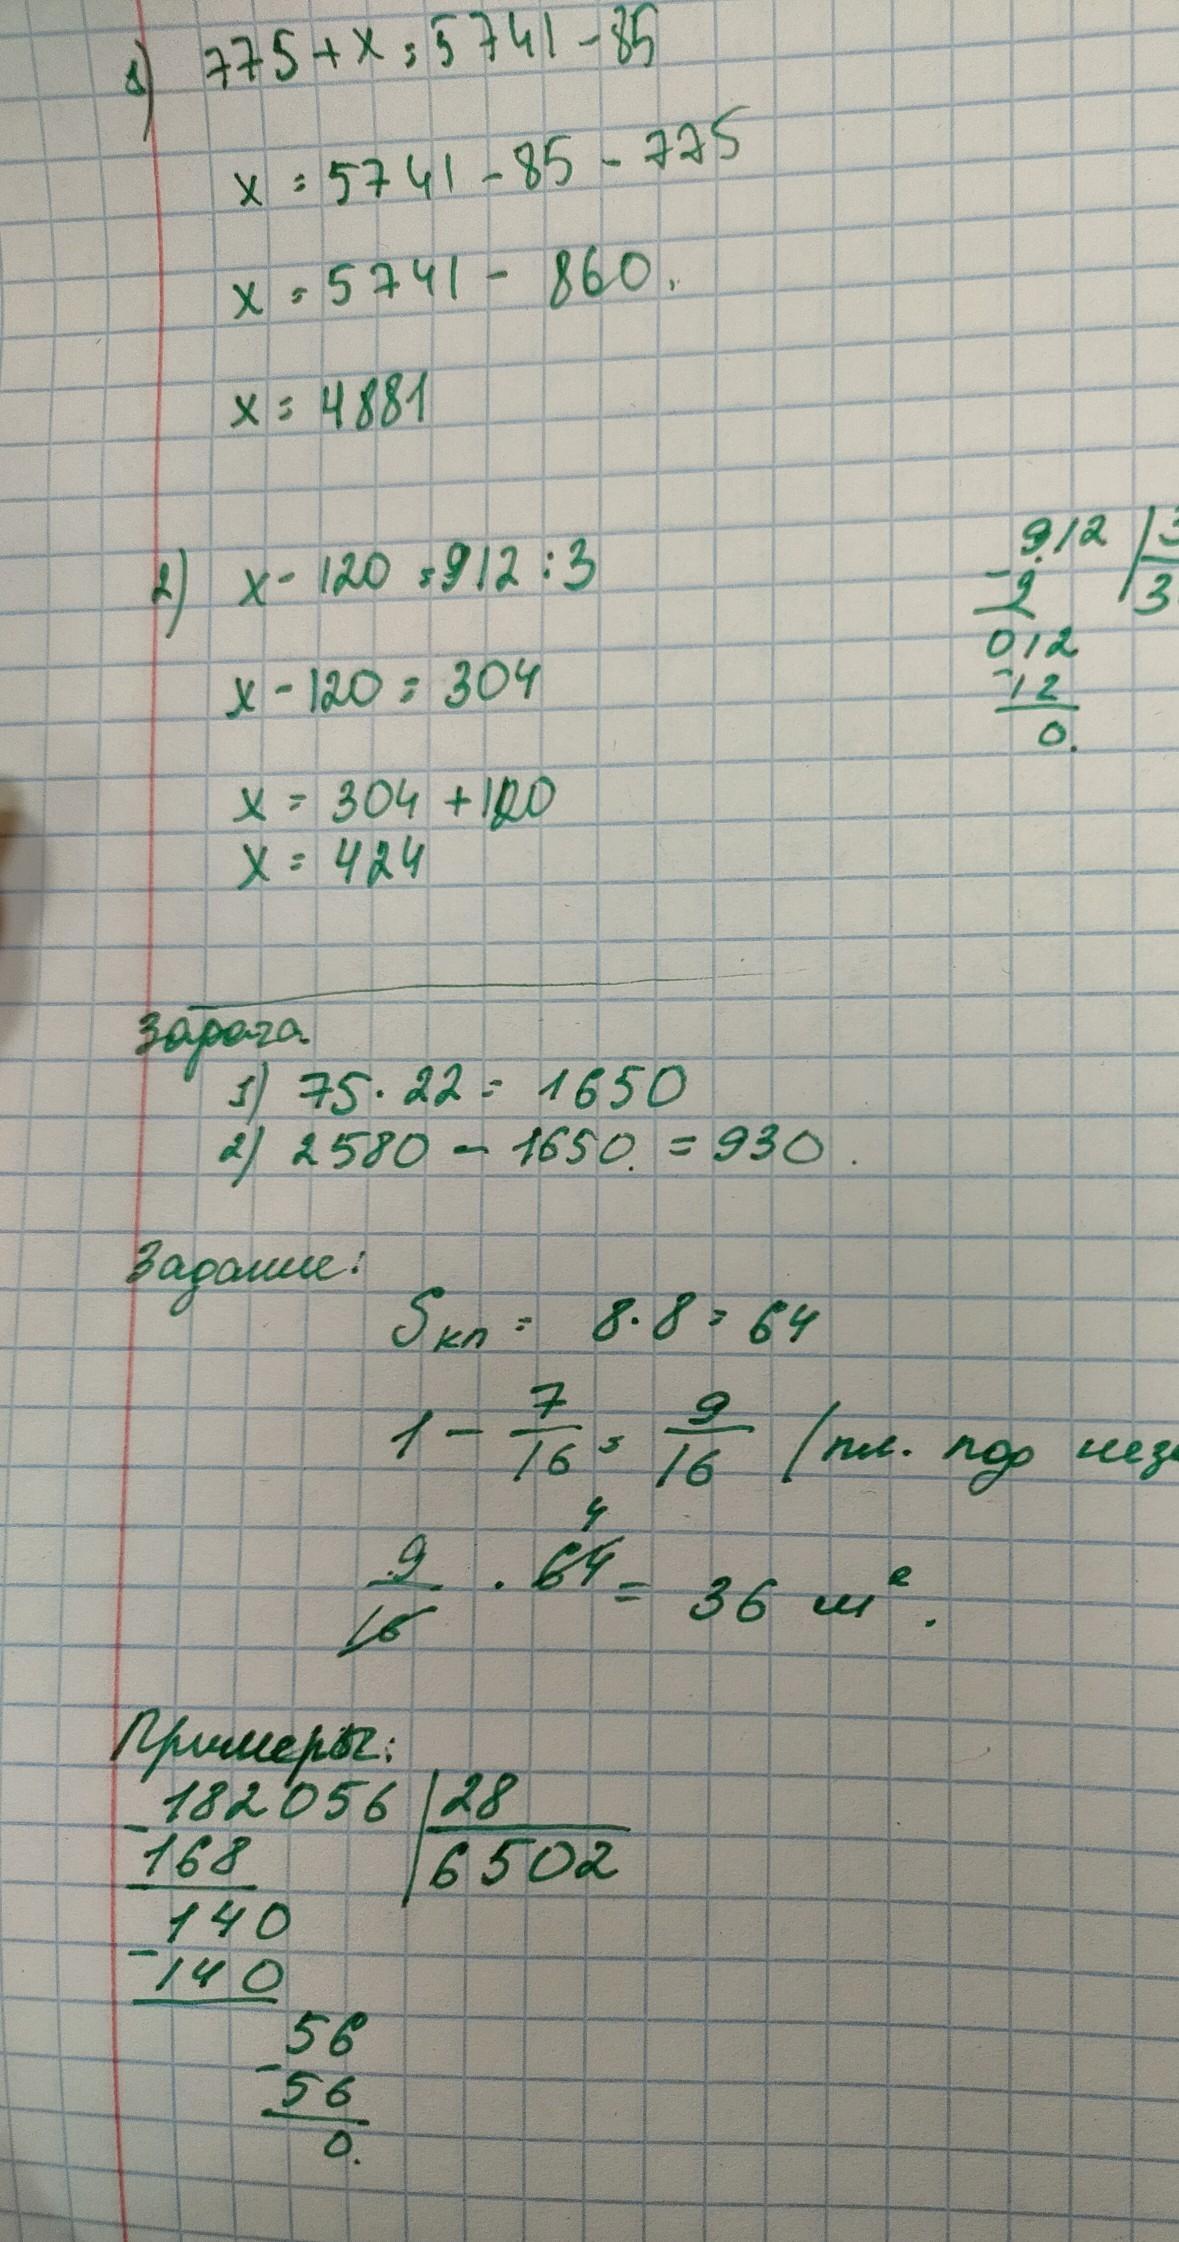 1) 775 + x = 5741 - 85
x = 5741 - 85 - 775
x = 5741 - 860.
x = 4881
2) x - 120 = 912 : 3
x - 120 = 304
x = 304 + 120
x = 424
912 | 3
- 9 3
012
- 12
0.
Задача
1) 75 · 22 = 1650
2) 2580 - 1650. = 930.
Задание:
Sкл = 8 · 8 = 64
1 - 7/16 = 9/16 (пл. под
9/16 · 64 4 = 36 м².
Примеры:
- 182056 | 28
168 6502
140
- 140
56
- 56
0.